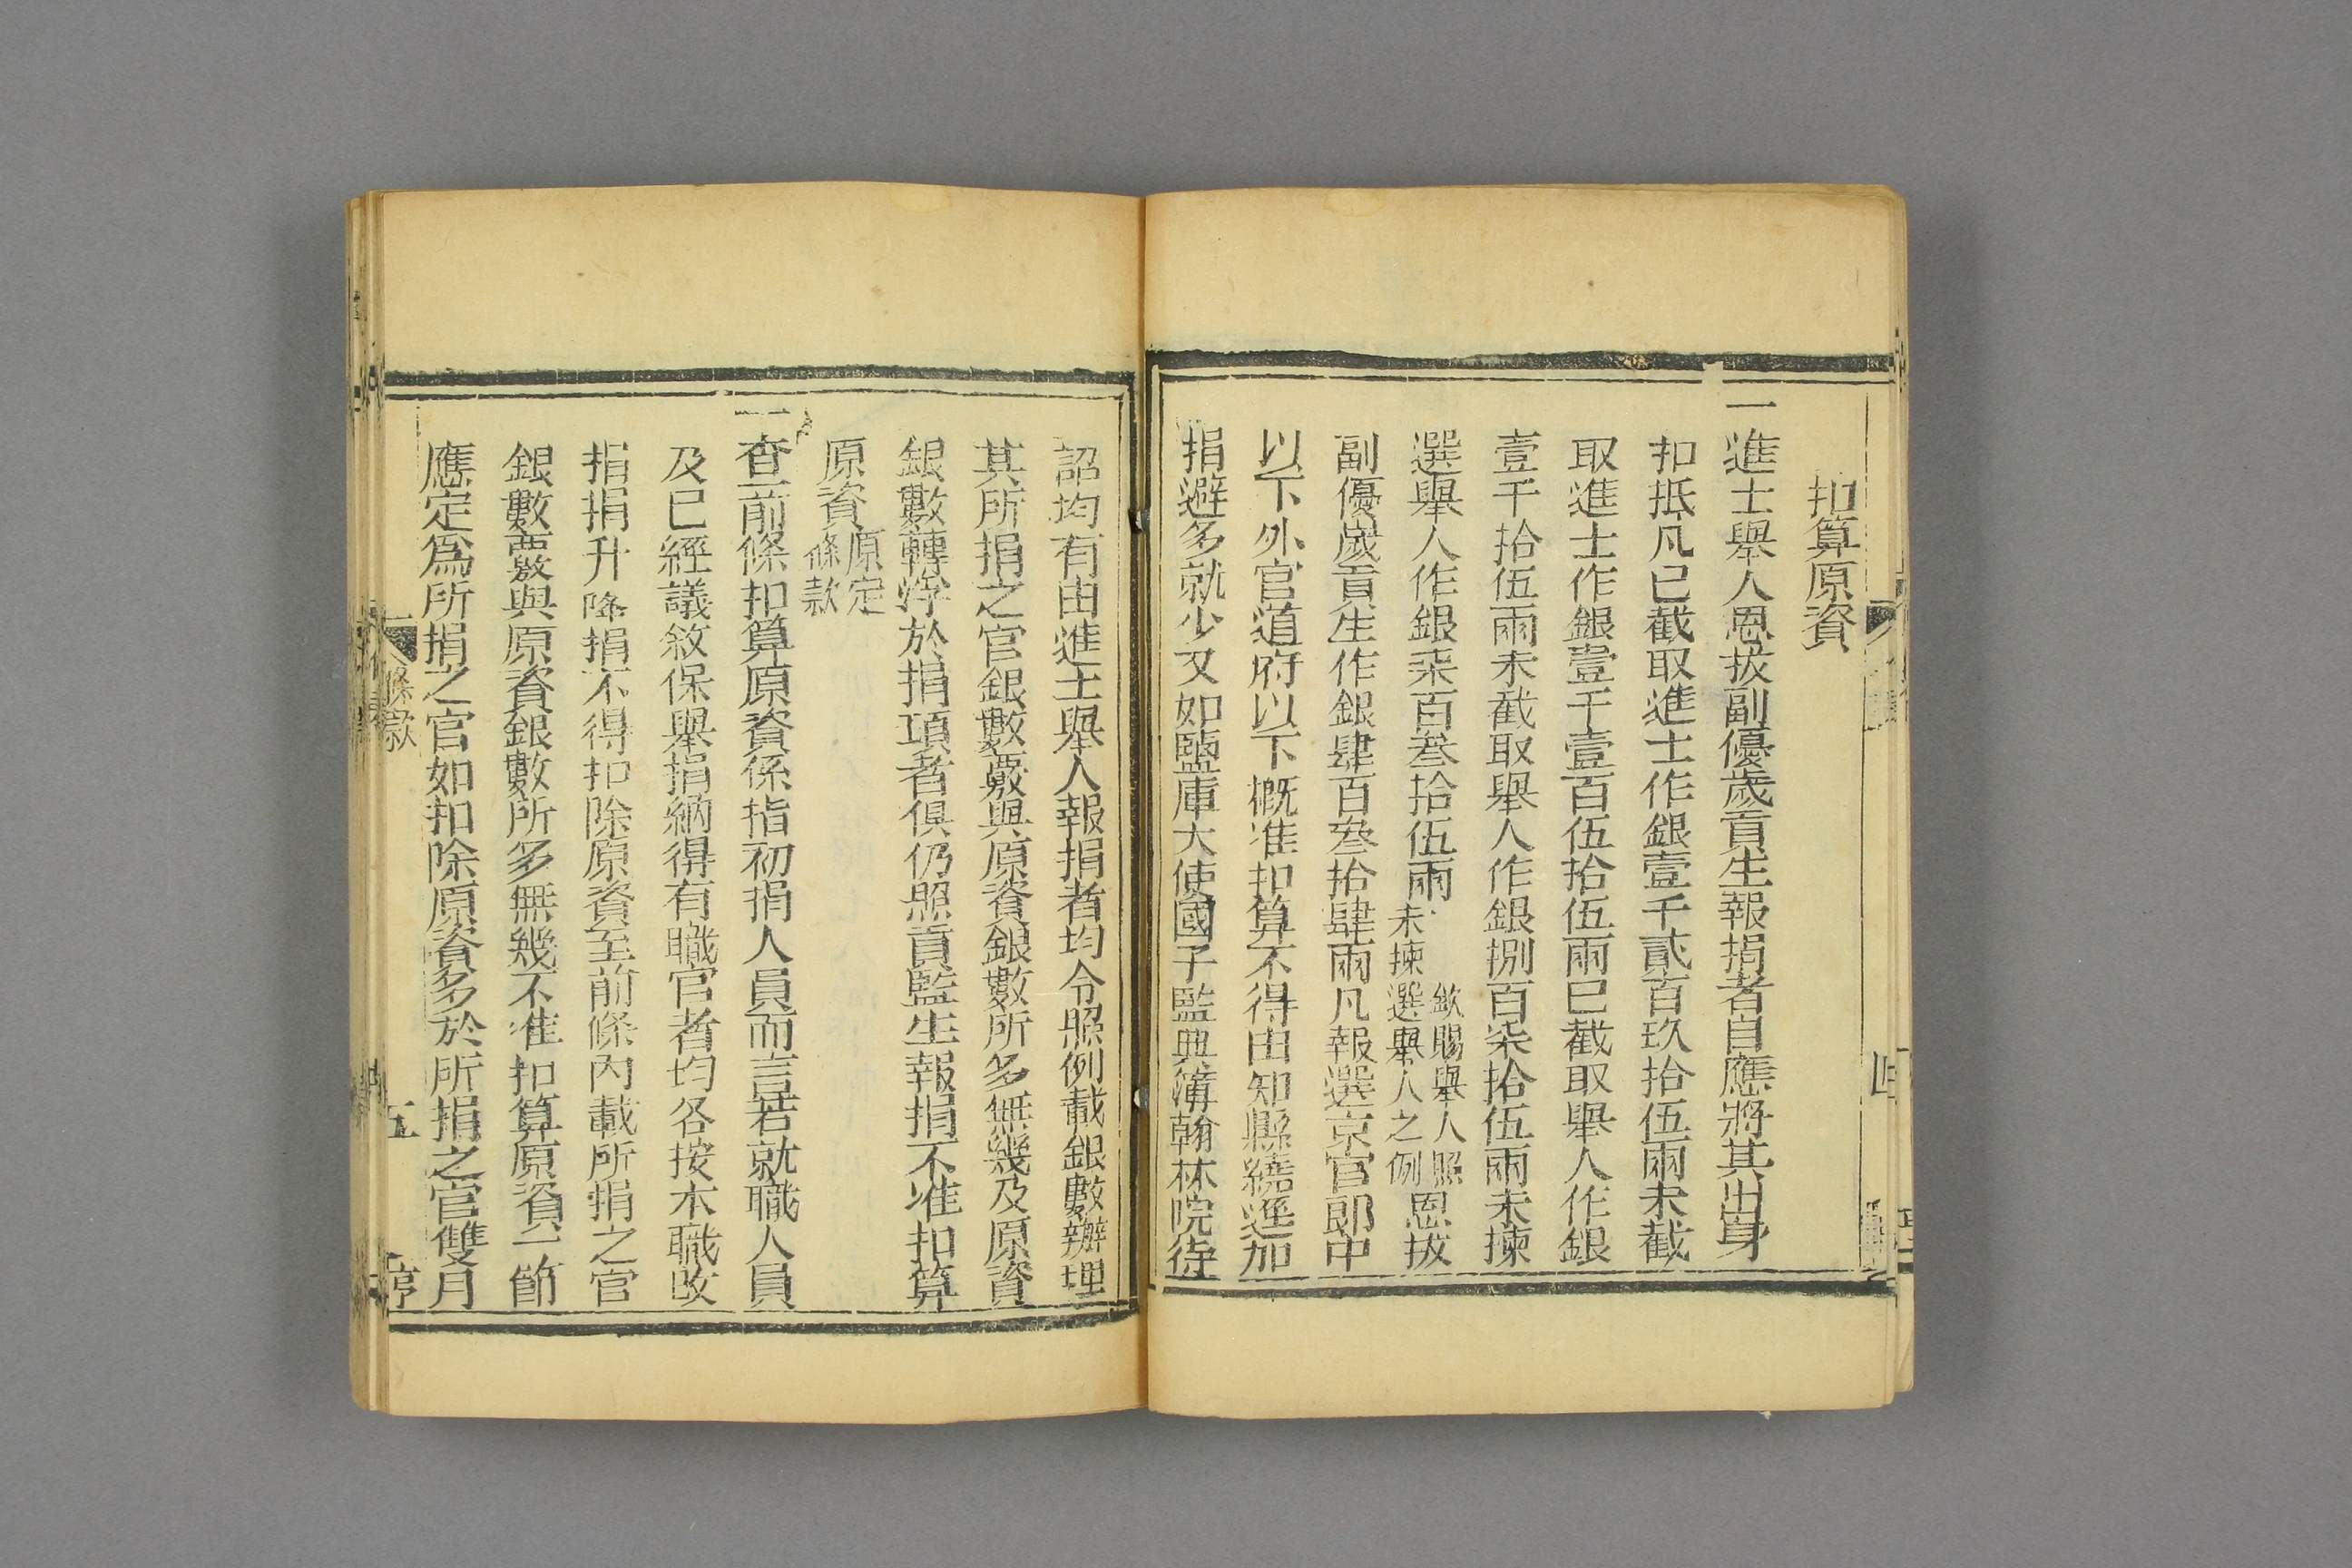 扣算原資
一進士舉人恩拔副優歲貢生報捐者自應將其出身
扣抵凡已截取進士作銀壹千貳百玖拾伍兩未截
取進士作銀壹千壹百伍拾伍兩已截取舉人作銀
壹千拾伍兩未截取舉人作銀捌百柒拾伍兩未揀
選舉人作銀柒百叁拾伍兩欽賜舉人照未揀選舉人之例恩拔
副優歲貢生作銀肆百叁拾肆兩凡報選京官郎中
以下外官道府以下概准扣算不得由知縣繞遞加
捐避多就少又如鹽庫大使國子監典簿翰林院待
詔均有由進士舉人報捐者均令照例載銀數辦理
其所捐之官銀數覈與原資銀數所多無幾及原資
銀數轉浮於捐項者俱仍照貢監生報捐不准扣算
原資原定條款
一查前條扣算原資係指初捐人員而言若就職人員
及已經議敘保舉捐納得有職官者均各按本職改
捐捐升降捐不得扣除原資至前條內載所捐之官
銀數覈與原資銀數所多無幾不准扣算原資一節
應定爲所捐之官如扣除原資多於所捐之官雙月
條款
五
亨